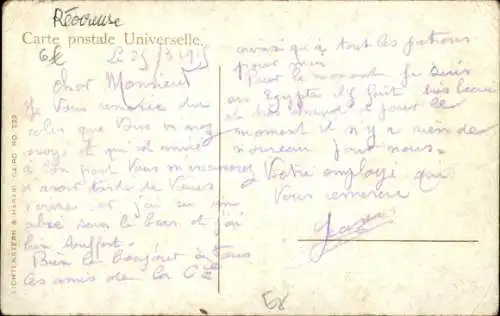 Réovreuse
Carte postale Universelle.
6€
Le 25/3 1915
Cher Monsieur
Je Vous remercie du
colis que Vous m'avez
envoyé et qui
Vous m'excuserez
d'avoir tardé de Vous
écrire car j'ai eu un
abcé sous le bras et j'ai
bien souffert.
Bien le bonjour à tous
les amis de la Cie
ainsi qu'à tout les patrons
pour moi
Pour le moment je suis
en Egypte il fait très beau
et très chaud pour le
moment il n'y a rien de
nouveau pour nous.
Votre employé qui
Vous remercie
LICHTENSTERN & HARARI, CAIRO NO. 122